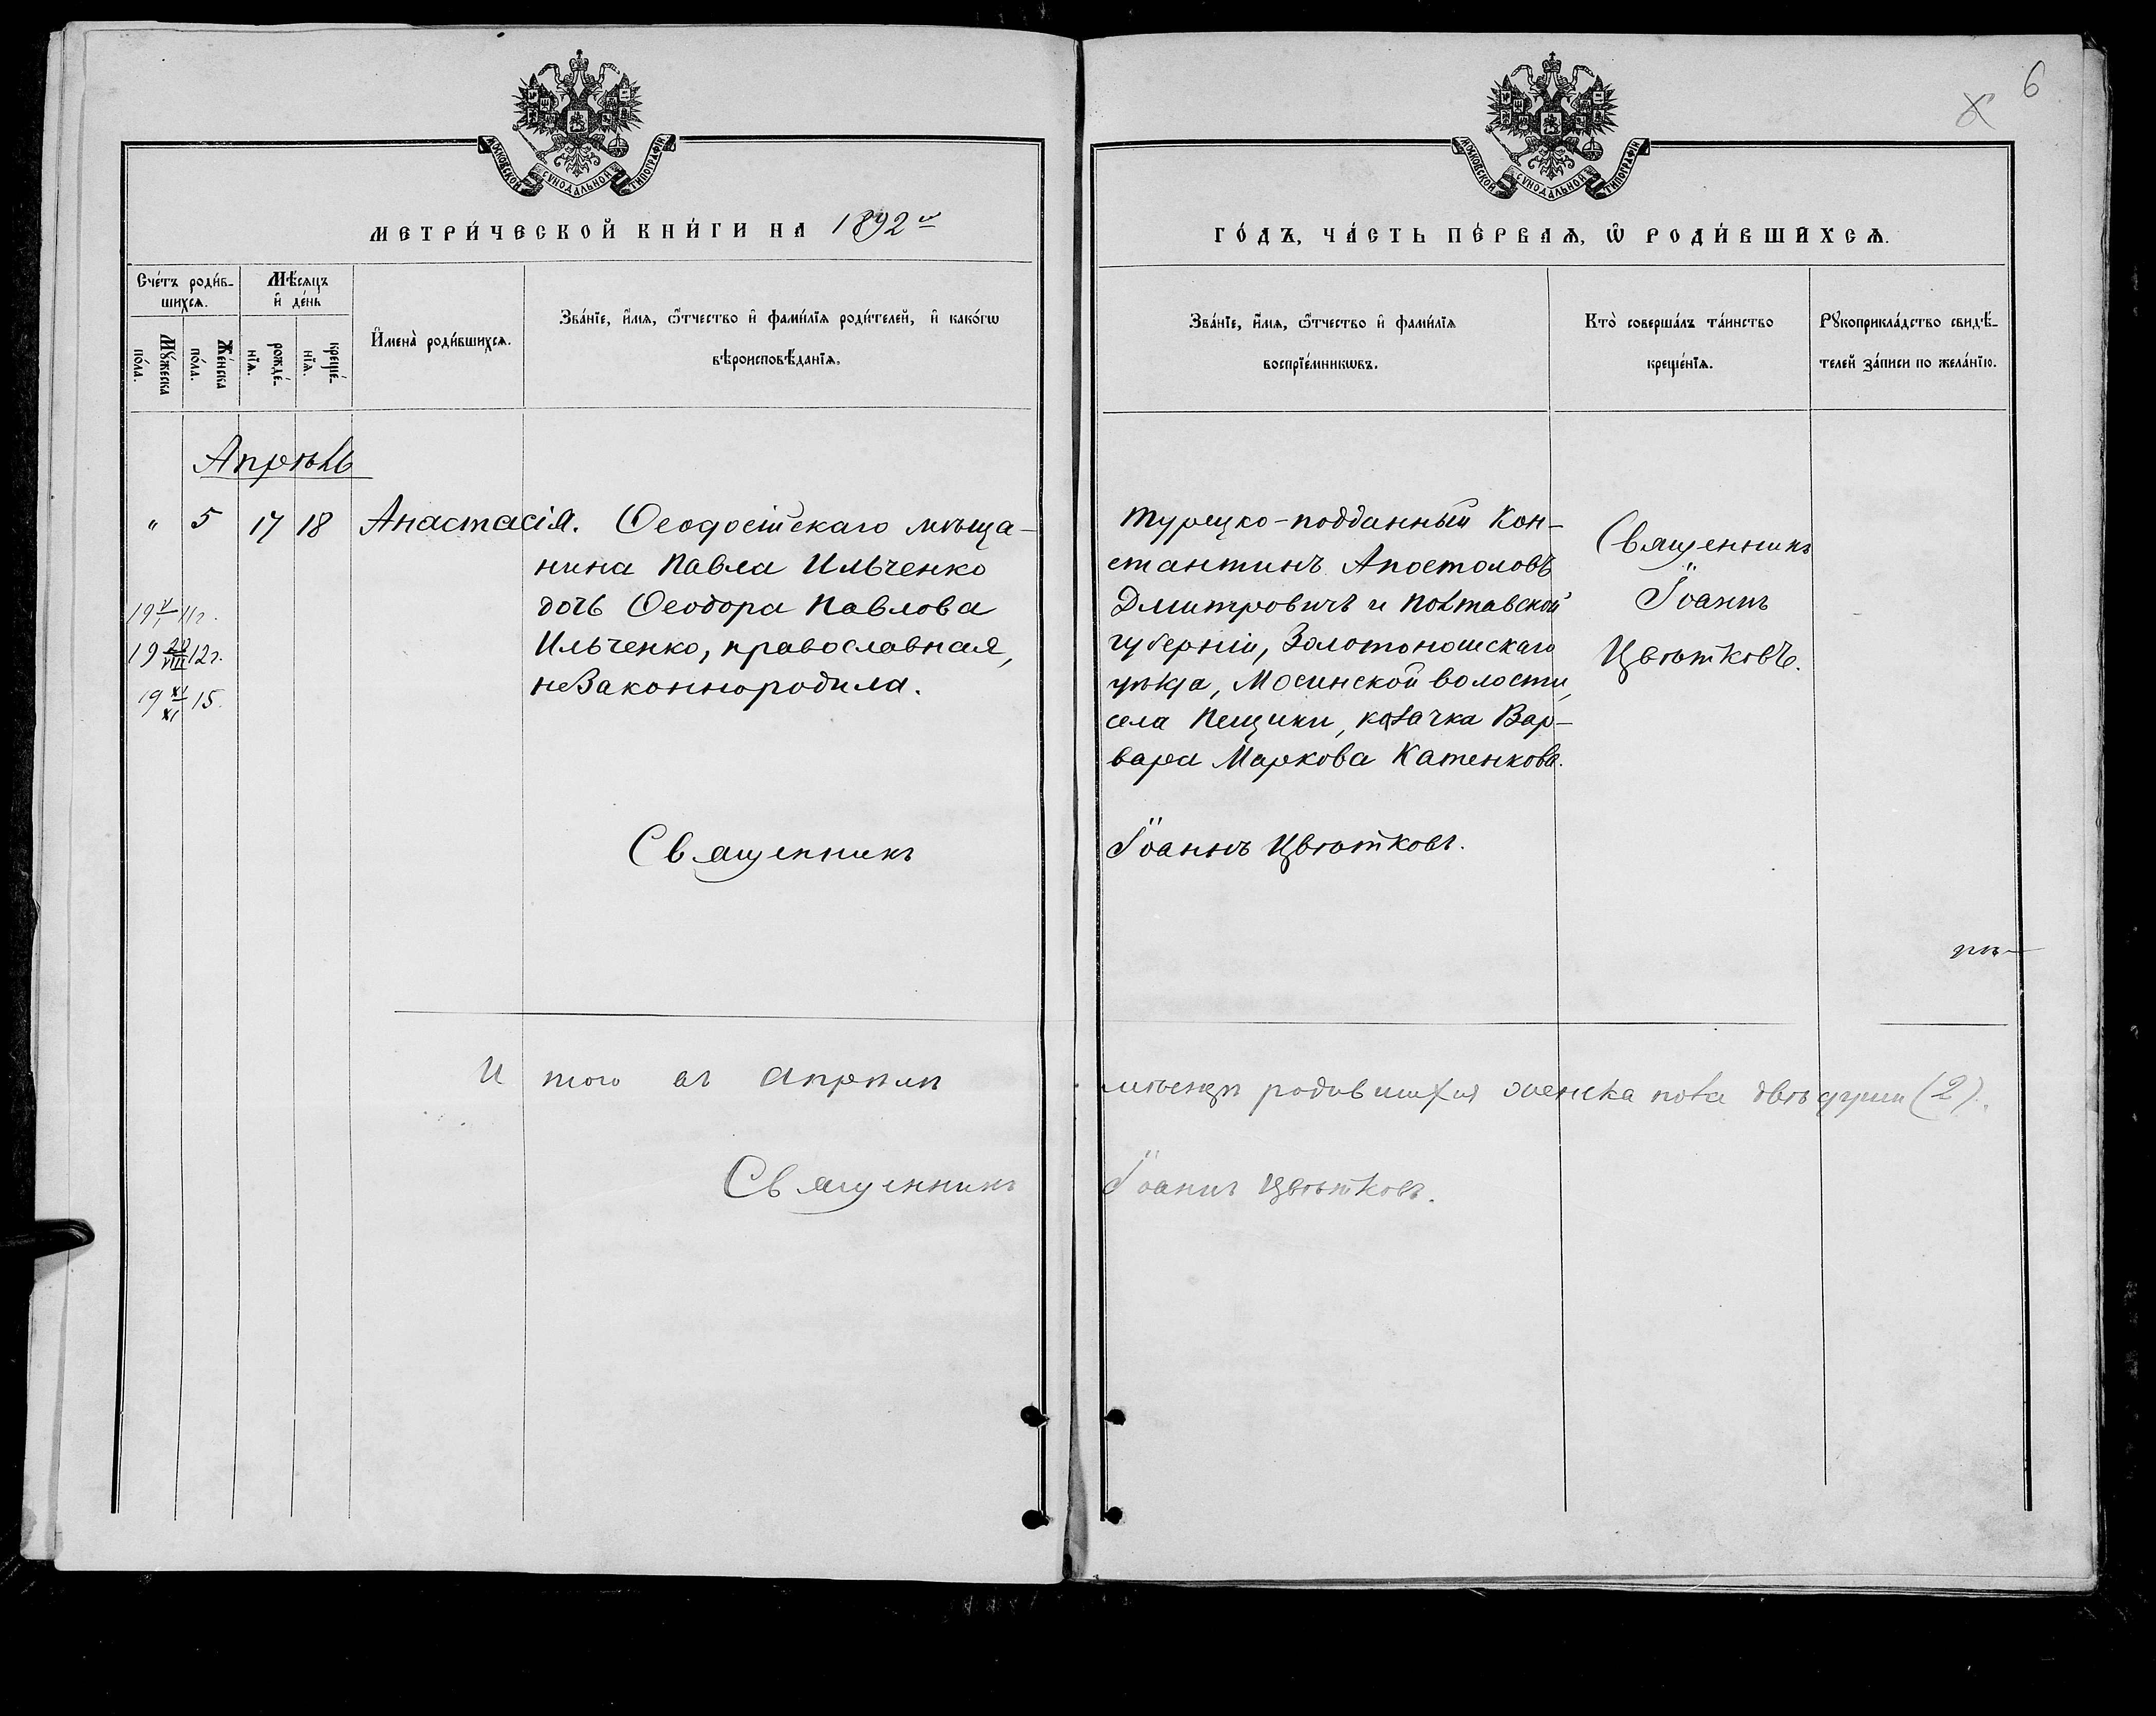 6
МОСКОВСКОЙ СѴНОДАЛЬНОЙ ТИПОГРАФІИ
МОСКОВСКОЙ СѴНОДАЛЬНОЙ ТИПОГРАФІИ
МЕТРИ́ЧЕСКОЙ КНИ́ГИ НА 1892й
ГО́ДЪ, ЧА́СТЬ ПЕ́РВАѦ, Ѡ҆ РОДИ́ВШИХСѦ.
Сче́тъ роди́в-
шихсѧ.
Мѣ́сѧцъ
и҆ де́нь
Мꙋ́жеска
по́ла.
Же́нска
по́ла.
рожде́-
нїѧ.
креще́-
нїѧ.
И҆мена̀ роди́вшихсѧ.
Зва́нїе, и҆́мѧ, ѻ҆́тчество и҆ фами́лїѧ роди́телей, и҆ како́гѡ
вѣроисповѣ́данїѧ.
Зва́нїе, и҆́мѧ, ѻ҆́тчество и҆ фами́лїѧ
воспрїе́мникѡвъ.
Кто̀ соверша́лъ та́инство
креще́нїѧ.
Рꙋкоприкла́дство свидѣ́-
телей за́писи по жела́нїю.
Апрѣль
" 5 17 18 Анастасія. Ѳеодосійскаго мѣща-
нина Павла Ильченко
дочь Ѳеодора Павлова
Ильченко, православная,
незаконнородила.
19 V 11г.
19 20 VIII 12г.
19 XI 15.
Турецко-подданный Кон-
стантинъ Апостоловъ
Дмитровичъ и Полтавской
губерніи, Золотоношскаго
уѣзда, Мосинской волости,
села Пещики, козачка Вар-
вара Маркова Катенкова.
Священникъ
Іоаннъ
Цвѣтковъ.
Священникъ Іоаннъ Цвѣтковъ.
И того въ Апрѣлѣ мѣсяцѣ родившихся женска пола двѣ души (2).
Священникъ Іоаннъ Цвѣтковъ.